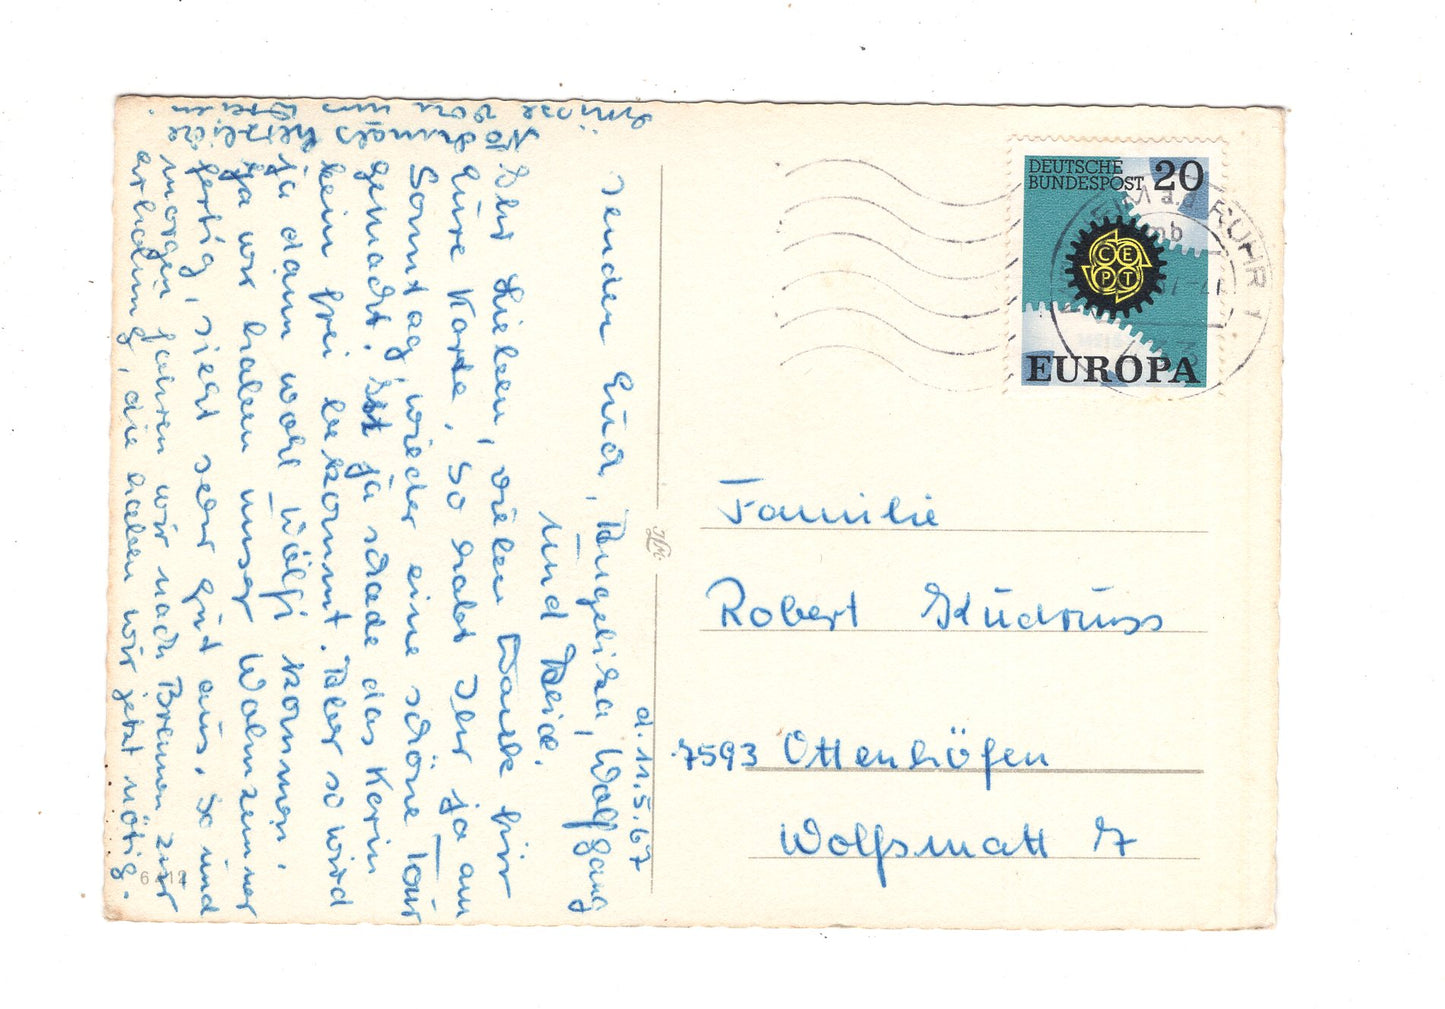 DEUTSCHE
BUNDESPOST 20
CEPT
EUROPA
a.d. RUHR 1
d. 11.5.67
Ihr Lieben, vielen Dank für
Eure Karte. So habt Ihr ja am
Sonntag wieder eine schöne Tour
gemacht. Ist ja schade das Karin
kein frei bekommt. Aber so wird
ja dann wohl Wölfi kommen.
Tja wir haben unser Wohnzimmer
fertig, sieht sehr gut aus. So und
morgen fahren wir nach Bremen zur
erholung, die haben wir jetzt nötig.
Nochmals herzliche
Grüsse von uns Dreien
senden Euch, Angelika, Wolfgang
und
Familie
Robert Kudruss
7593 Ottenhöfen
Wolfsmatt 7